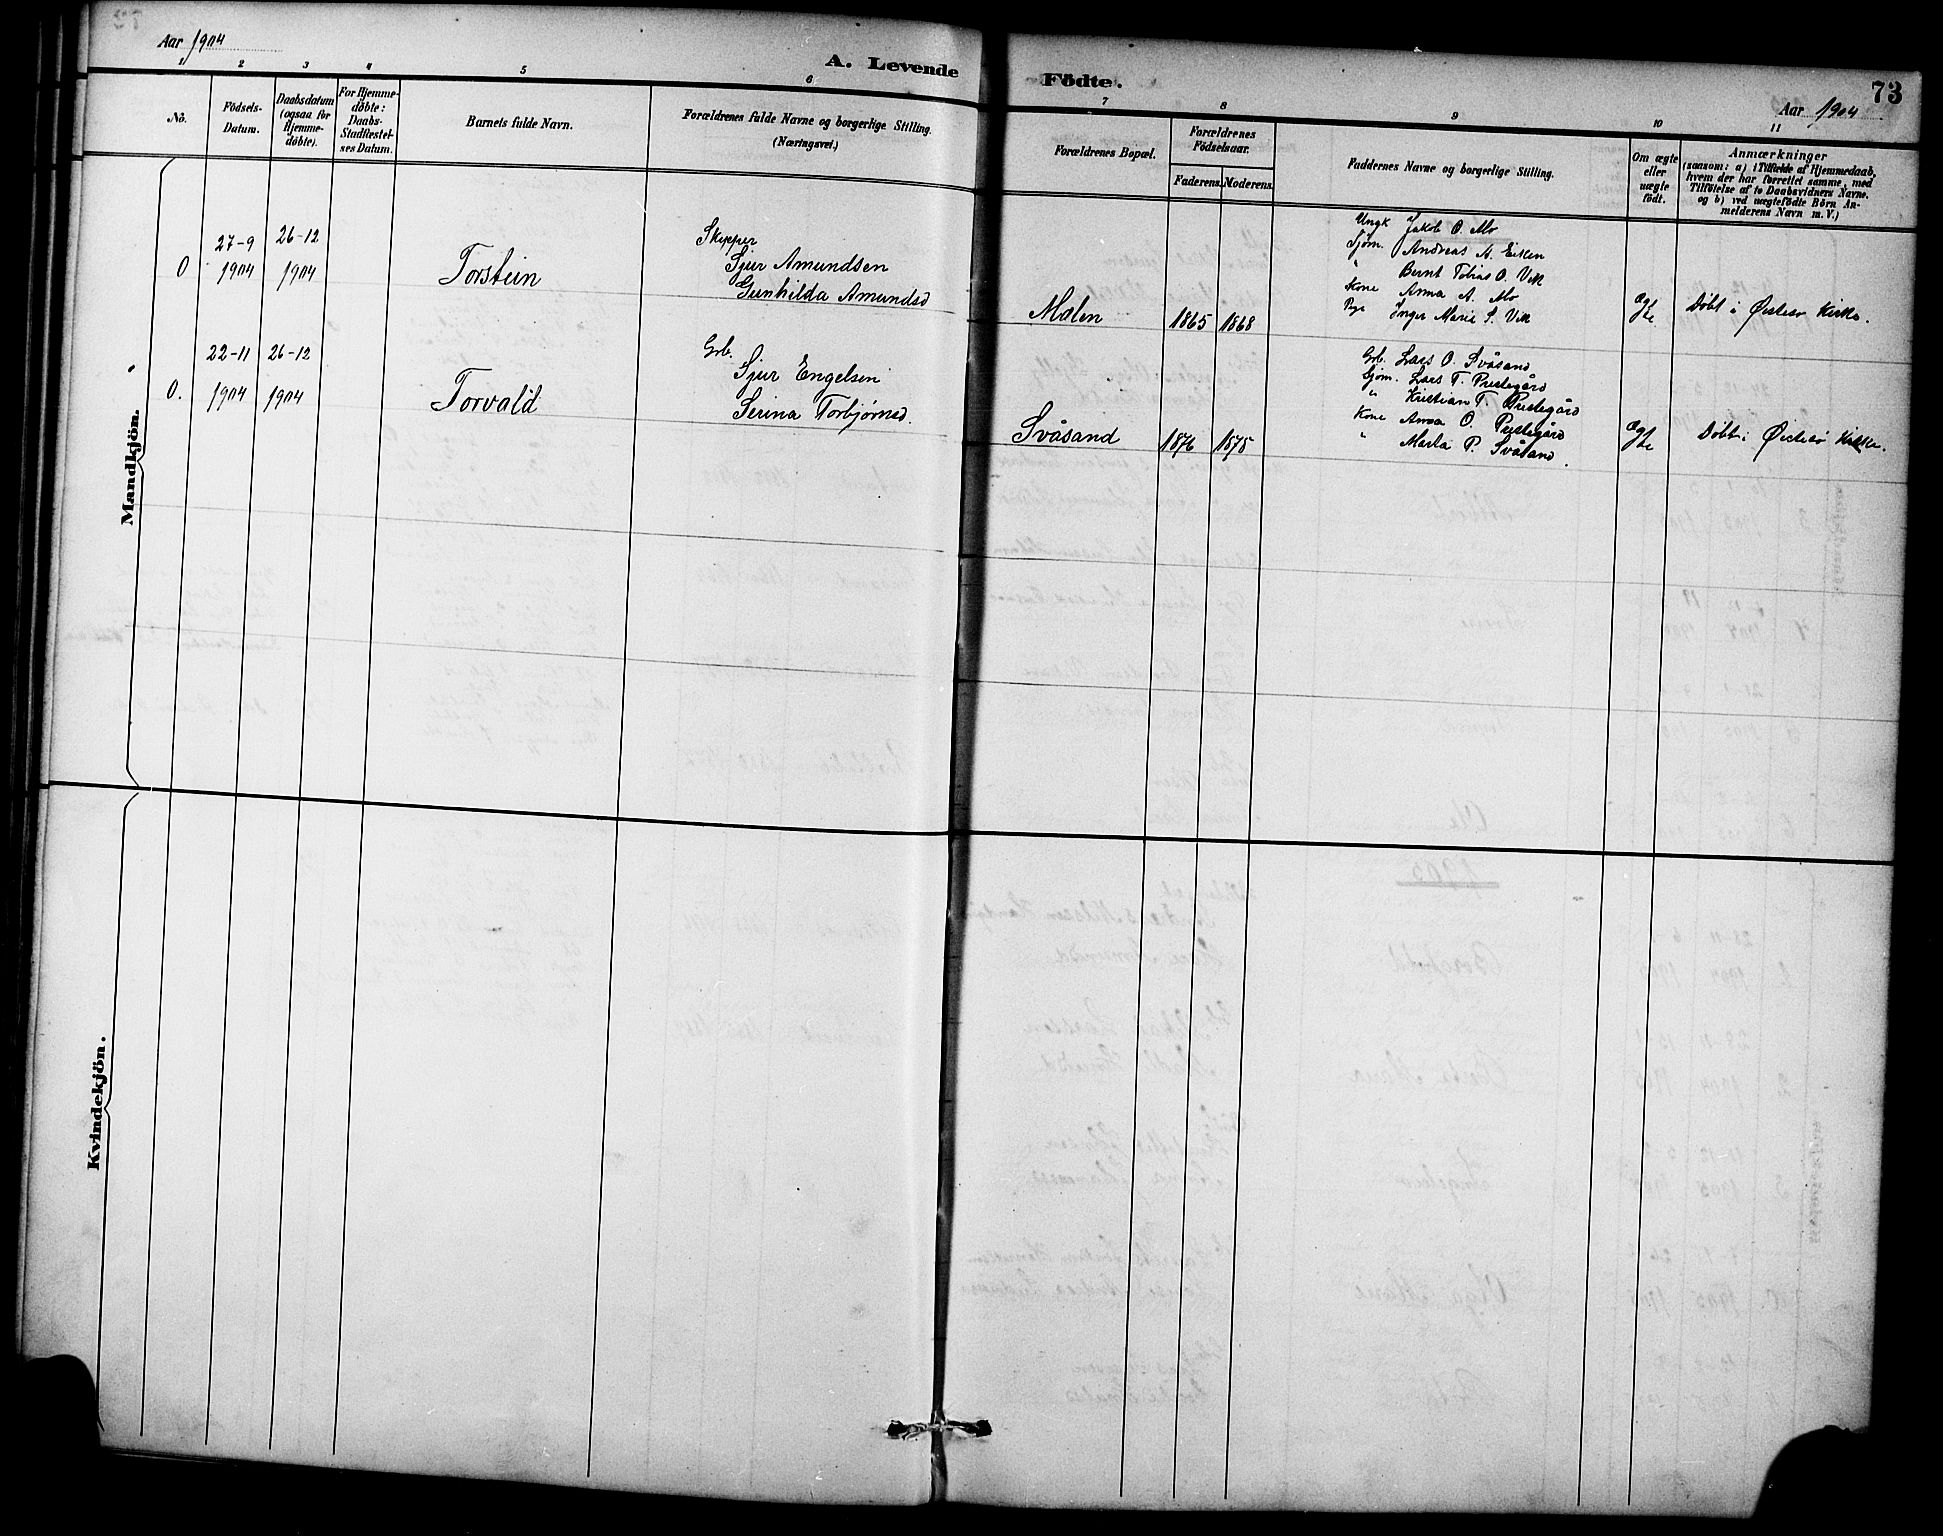 Aar 1904
A. Levende
Födte.
73
Aar 1904
1 2 3 4 5 6 7 8 9 10 11
No.
Födsels-
Datum.
Daabsdatum
(ogsaa for
Hjemme-
döbte).
For Hjemme-
döbte:
Daabs-
Stadfæstel-
ses Datum.
Barnets fulde Navn.
Forældrenes fulde Navne og borgerlige Stilling.
(Næringsvei.)
Forældrenes Bopæl.
Forældrenes
Födselsaar.
Faderens. Moderens.
Faddernes Navne og borgerlige Stilling.
Om ægte
eller
uægte
födt.
Anmærkninger
(saasom: a) i Tilfælde af Hjemmedaab,
hvem der har forrettet samme, med
Tilföielse af to Daabsvidners Navne.
og b) ved uægtefödte Börn An-
melderens Navn m. V.)
Mandkjön.
0
27-9
1904
26-12
1904
Torstein
Skipper
Sjur Amundsen
Gunhilda Amundsd
Molen
1865 1868
Ungk Jakob O. Mo
Sjøm. Andreas A. Eiken
" Bernt Tobias O. Vik
Kone Anna A. Mo
Pige Inger Marie S. Vik
Ægte
Døbt i Østesø Kirke.
0.
22-11
1904
26-12
1904
Torvald
Grb.
Sjur Engelsen
Serina Torbjørnsd.
Svåsand
1876 1875
Grb. Lars O. Svåsand
Sjøm. Lars T. Prestegård
" Kristian T. Prestegård
Kone Anna O. Prestegård
" Marta P. Svåsand.
Ægte
Døbt i Østesø Kirke.
Kvindekjön.